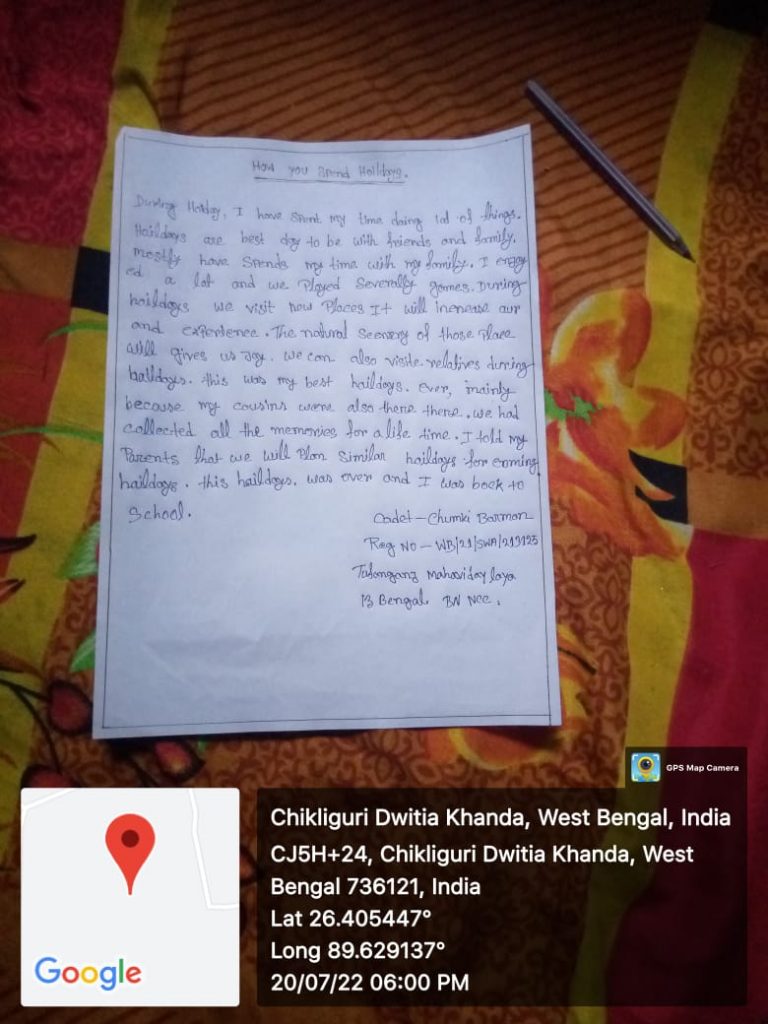 How you Spend Haildays.
During Holiday, I have spent my time doing lot of things.
Haildays are best day to be with friends and family.
mostly have spends my time with my family. I enjoy
ed a lot and we Played Severally games. During
haildays we visit new Places It will increase our
and experience. The natural Scenery of those Place
will gives us Joy. we can also visite relatives during
haildays. this was my best haildays. ever, mainly
because my cousins were also there there. we had
collected all the memories for a life time. I told my
Parents that we will Plan Similar haildays for
haildays. this haildays. was over and I was back to
School.
Cadet - Chumki Barman
Reg No - WB/21/SWA/219125
13 Bengal BN NCC.
GPS Map Camera
Chikliguri Dwitia Khanda, West Bengal, India
CJ5H+24, Chikliguri Dwitia Khanda, West
Bengal 736121, India
Lat 26.405447°
Long 89.629137°
20/07/22 06:00 PM
Google